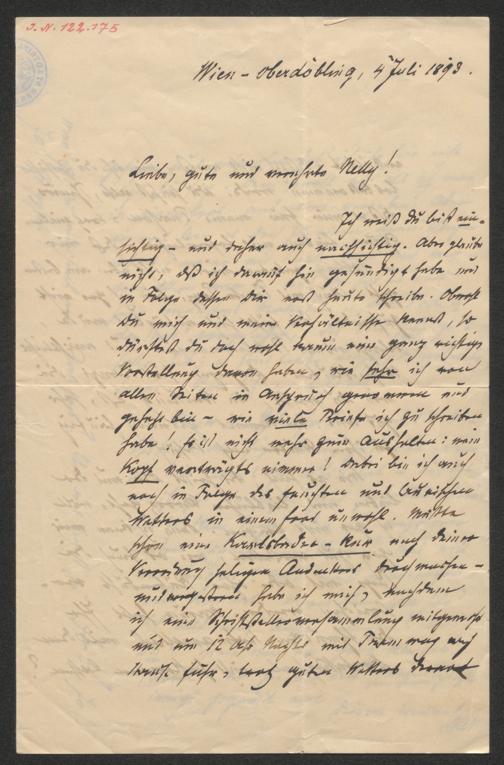 I. N. 122.175
Wien – Oberdöbling, 4 Juli 1893.
Liebe, gute und verehrte Nelly!
Ich weiß du bist ein-
sichtig – und daher auch nachsichtig. Aber glaube
nicht, daß ich darauf hin gesündigt habe und
in Folge dessen Dir erst heute schreibe. Obwohl
Du mich und meine Verhältnisse kennst, so
dürftest du doch wohl kaum eine ganz richtige
Vorstellung davon haben, wie sehr ich von
allen Seiten in Anspruch genommen und
gehetzt bin – wie viele Briefe ich zu schreiben
habe! Es ist nicht mehr zum Aushalten: mein
Kopf verträgts nimmer! Dabei bin ich auch
noch in Folge des feuchten und launischen
Wetters in einem fort unwohl. Mußte
schon eine Karlsbader-Kur nach deiner
Verordnung seligen Andenkens durchmachen –
und habe ich mich, nachdem
ich eine Schriftstellerversammlung mitgemacht
und um 12 Uhr Nachts mit Tramway nach
Hause fuhr, trotz guten Wetters derart